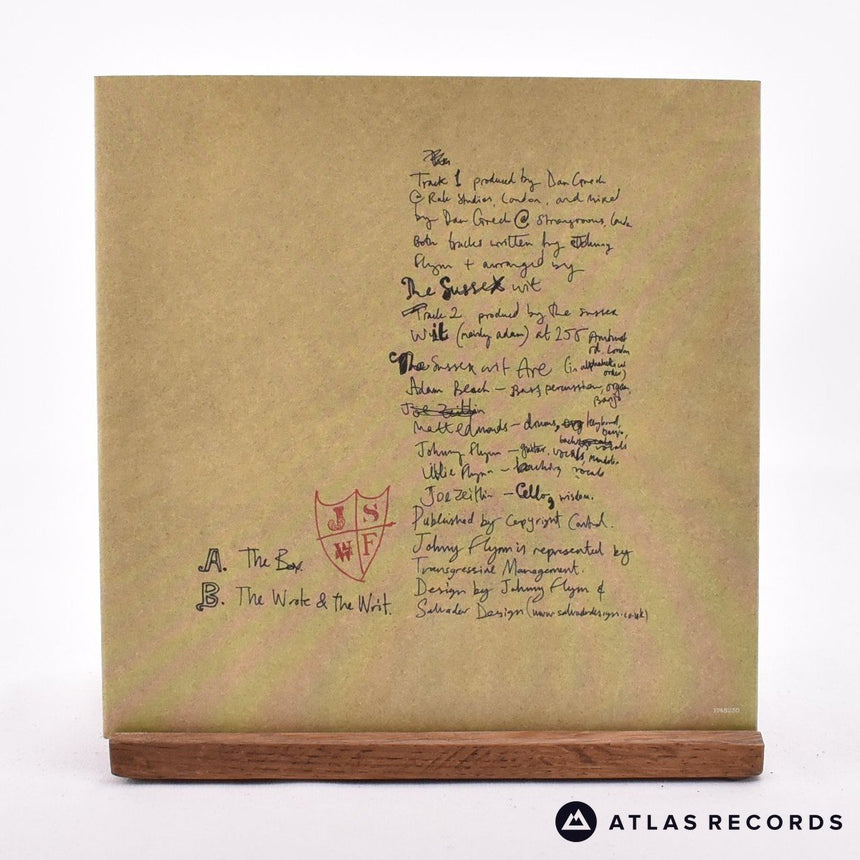 Track 1 produced by Dan Grech
@ Rak Studios, London, and mixed
by Dan Grech @ Strongrooms,
Both tracks written by Johnny
Flynn + arranged by
The Sussex wit
Track 2 produced by the Sussex
Wit (mainly adam) at 255
rd, London
The Sussex wit Are (in alphabetical
order)
Adam Beach – Bass, percussion, organ,
Banjo
Joe Zeitlin
Matt Edmonds – drums, keyboard,
Banjo,
backing vocals
Johnny Flynn – guitar, vocals,
Lillie Flynn – backing vocals
Joe Zeitlin – Cello, wisdom.
Published by Copyright Control.
Johnny Flynn is represented by
Transgressive Management.
Design by Johnny Flynn &
Salvador Design (www.salvadordesign.co.uk)
J S
W F
A. The Box
B. The Wrote & the Writ.
ATLAS RECORDS